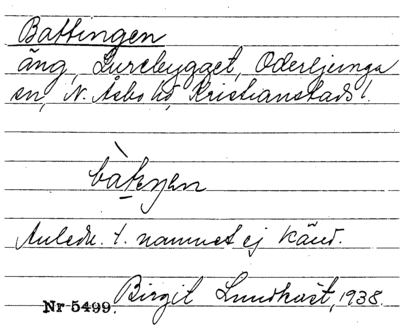 Battingen
äng, Lurebygget, Oderljunga
sn, N. Åsbo hd, Kristianstads l.
bàteŋen
Anledn. t. namnet ej känd.
Birgit Lundkvist, 1938.
Nr 5499.